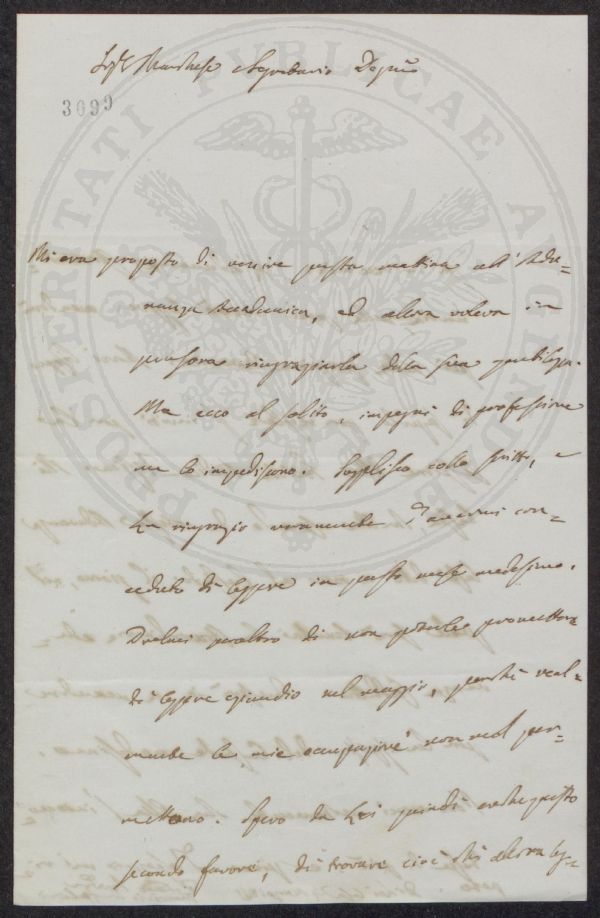 Sig.r Marchese e Segretario Degnmo
3099
POSTERITATI PUBLICAE AUGENDAE
Mi era proposto di venire questa mattina all'Adu=
nanza Accademica, ed allora voleva in
persona ringraziarla della sua gentilezza.
Ma ecco al solito, impegni di professione
me lo impediscono. Supplisco collo scritto, e
La ringrazio veramente d'avermi con=
ceduto di leggere in questo mese medesimo.
Duolmi peraltro di non poterle promettere
di leggere eziandio nel maggio, perchè real=
mente le mie occupazioni non mel per=
mettono. Spero da Lei quindi anche questo
secondo favore, di trovare cioè chi allora leg=